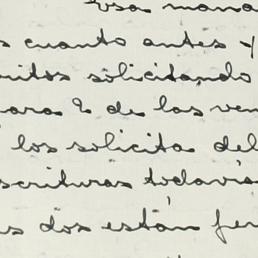 esa mana
s cuanto antes y
uitos solicitando
para & de las ven
los solicita del
scrituras todavía
us dos están fer